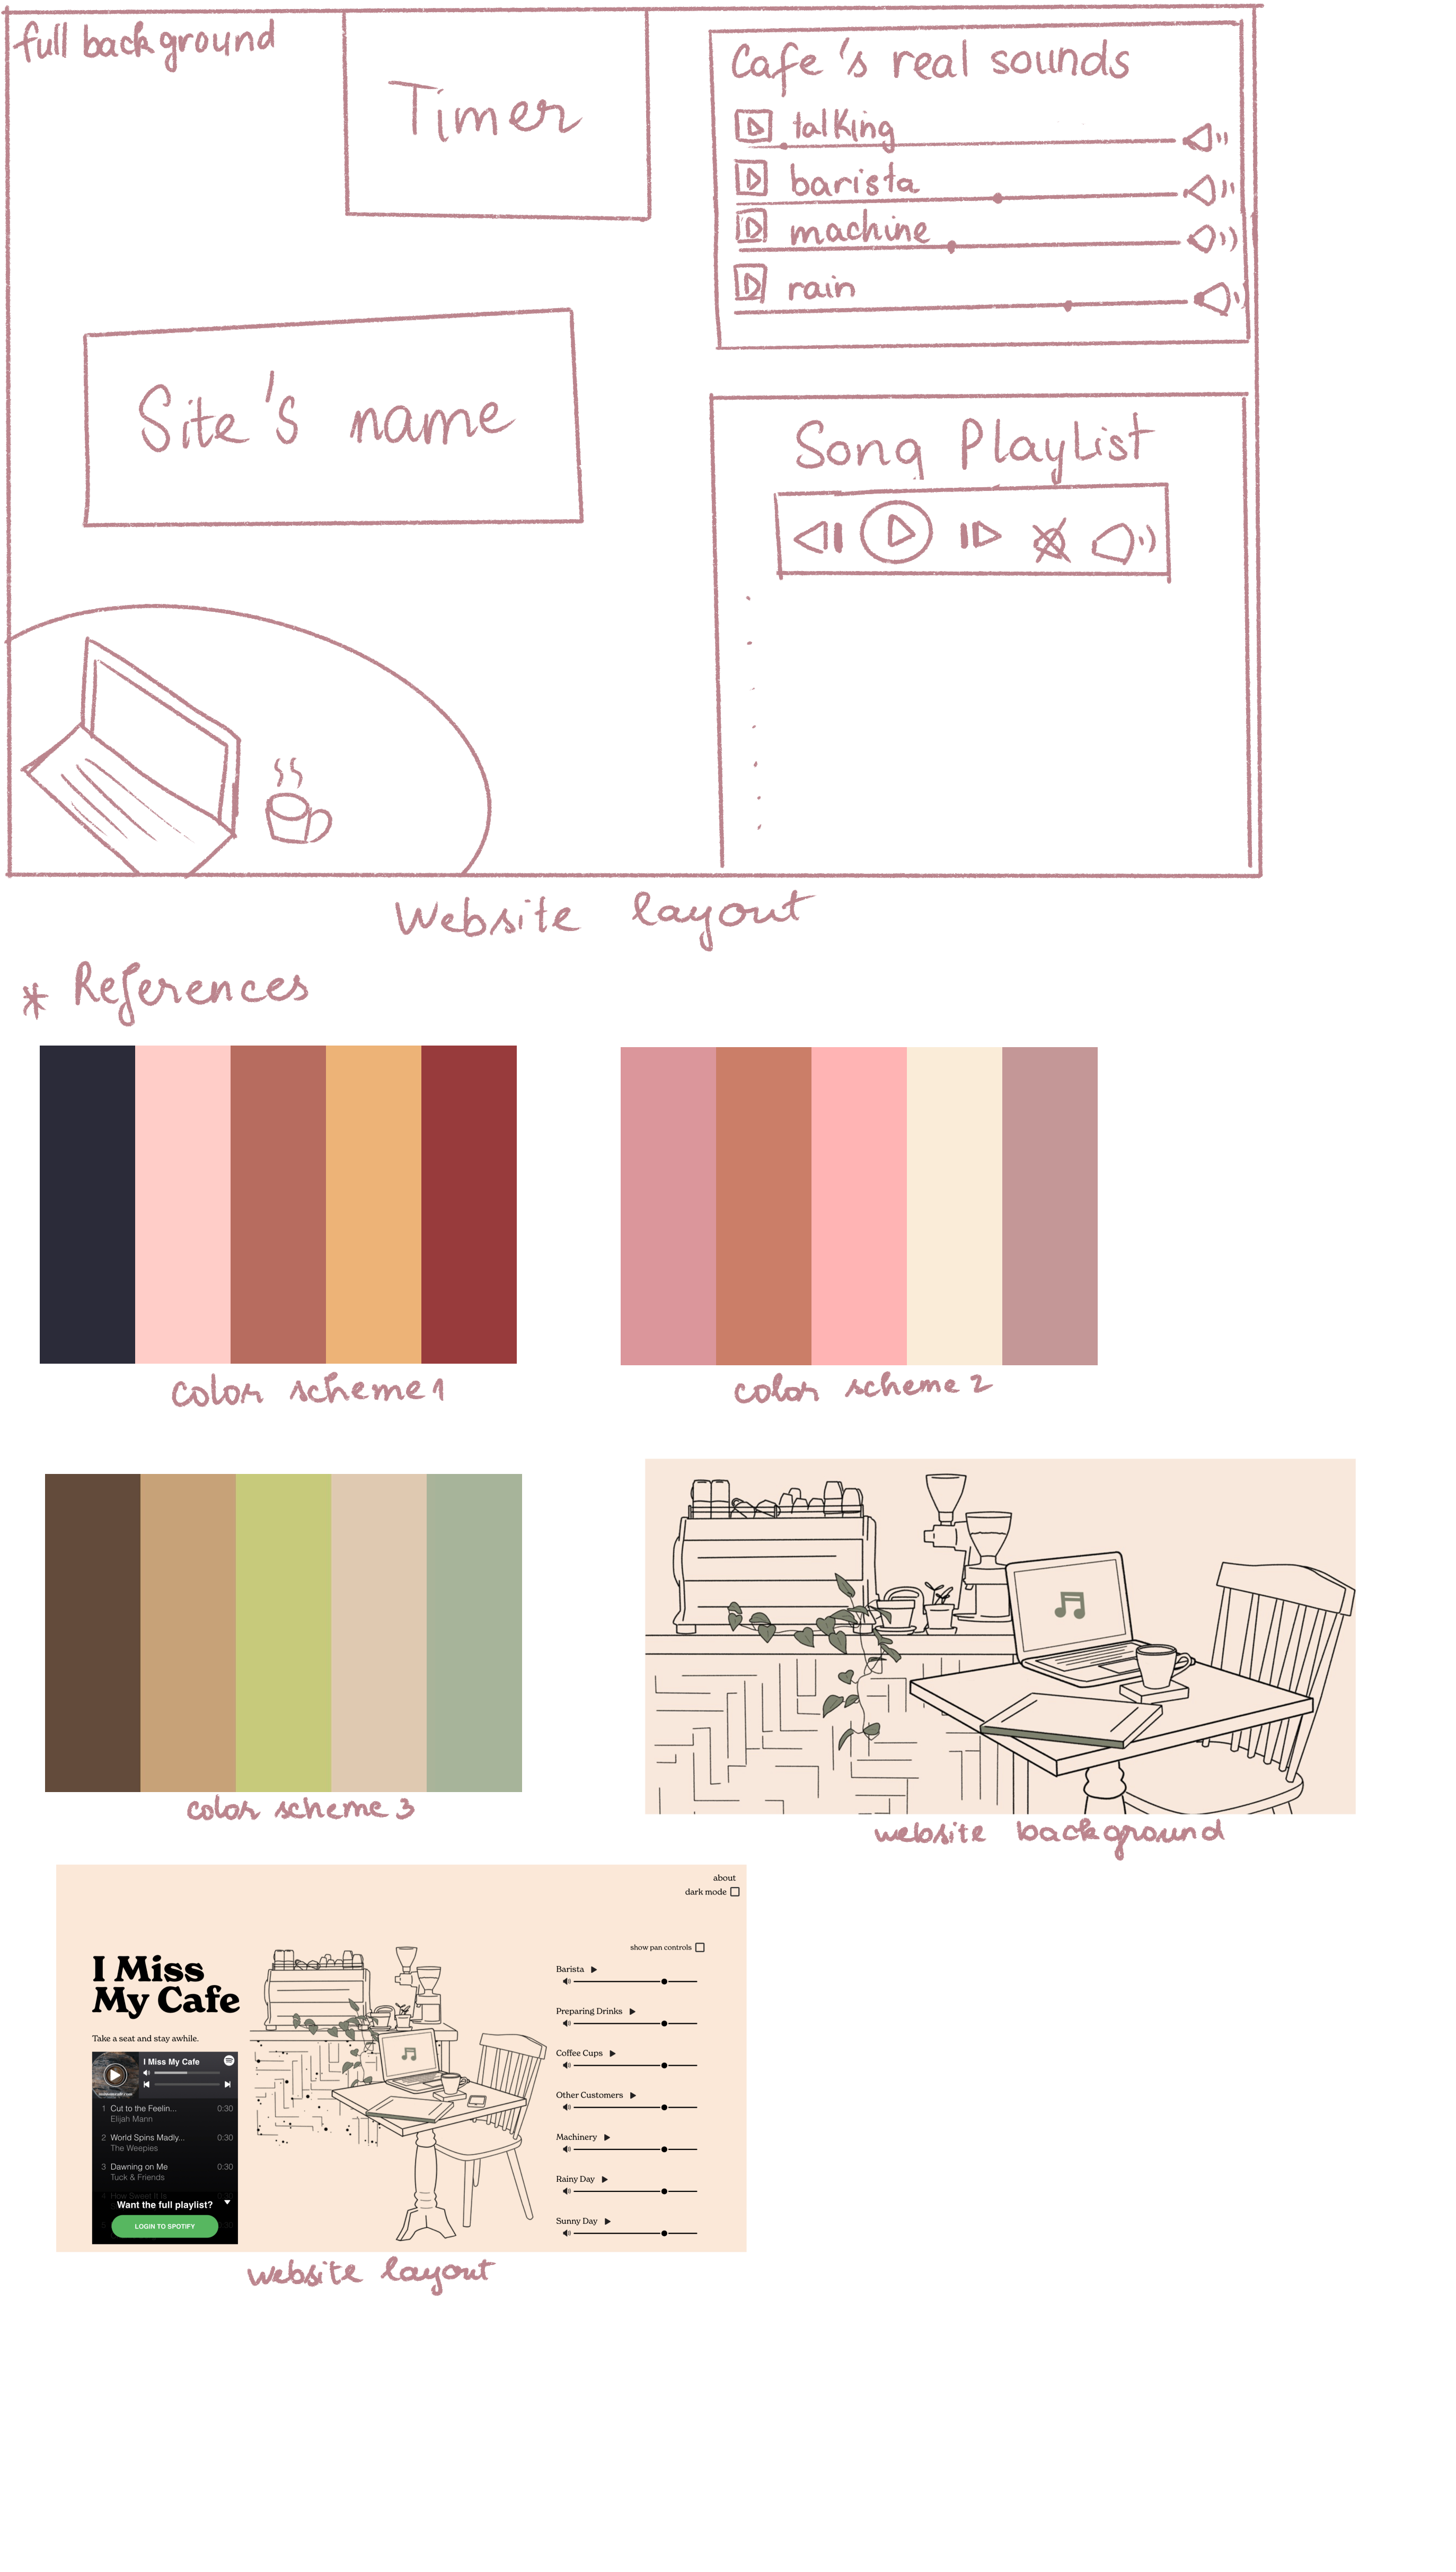 full background
Timer
Cafe's real sounds
talking
barista
machine
rain
Site's name
Song Playlist
Website layout
* References
color scheme 1
color scheme 2
color scheme 3
website background
about
dark mode
show pan controls
I Miss
My Cafe
Take a seat and stay awhile.
I Miss My Cafe
1 Cut to the Feelin... 0:30
Elijah Mann
2 World Spins Madly... 0:30
The Weepies
3 Dawning on Me 0:30
Tuck & Friends
4 How Sweet It Is
Want the full playlist?
LOGIN TO SPOTIFY
Barista
Preparing Drinks
Coffee Cups
Other Customers
Machinery
Rainy Day
Sunny Day
website layout